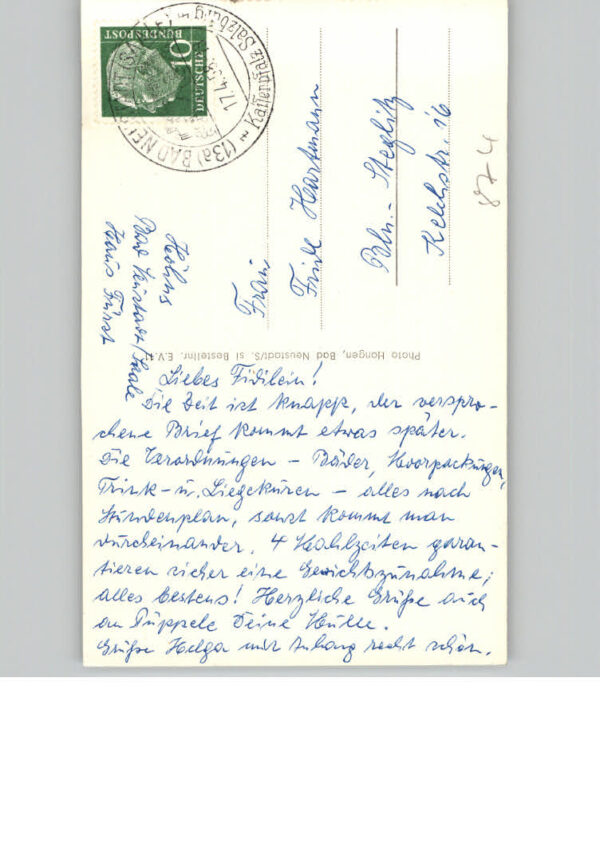 DEUTSCHE
BUNDESPOST
10
(13a) BAD NEU
17.4.59
Kaiserpfalz Salzburg
Höhns
Bad Neustadt/Saale
Haus Fürst
Frau
Fridl Hartmann
Bln.-Steglitz
Kelchstr. 26
874
Photo Hongen, Bad Neustadt/S. si Bestellnr. E.V.11
Liebes Fidilein!
Die Zeit ist knapp, der verspro-
chene Brief kommt etwas später.
Die Verordnungen - Bäder, Moorpackungen,
Trink- u. Liegekuren - alles nach
Stundenplan, sonst kommt man
durcheinander. 4 Mahlzeiten garan-
tieren sicher eine Gewichtszunahme;
alles bestens! Herzliche Grüße auch
an Püppele Deine
Grüße Helga mit Anhang recht schön.